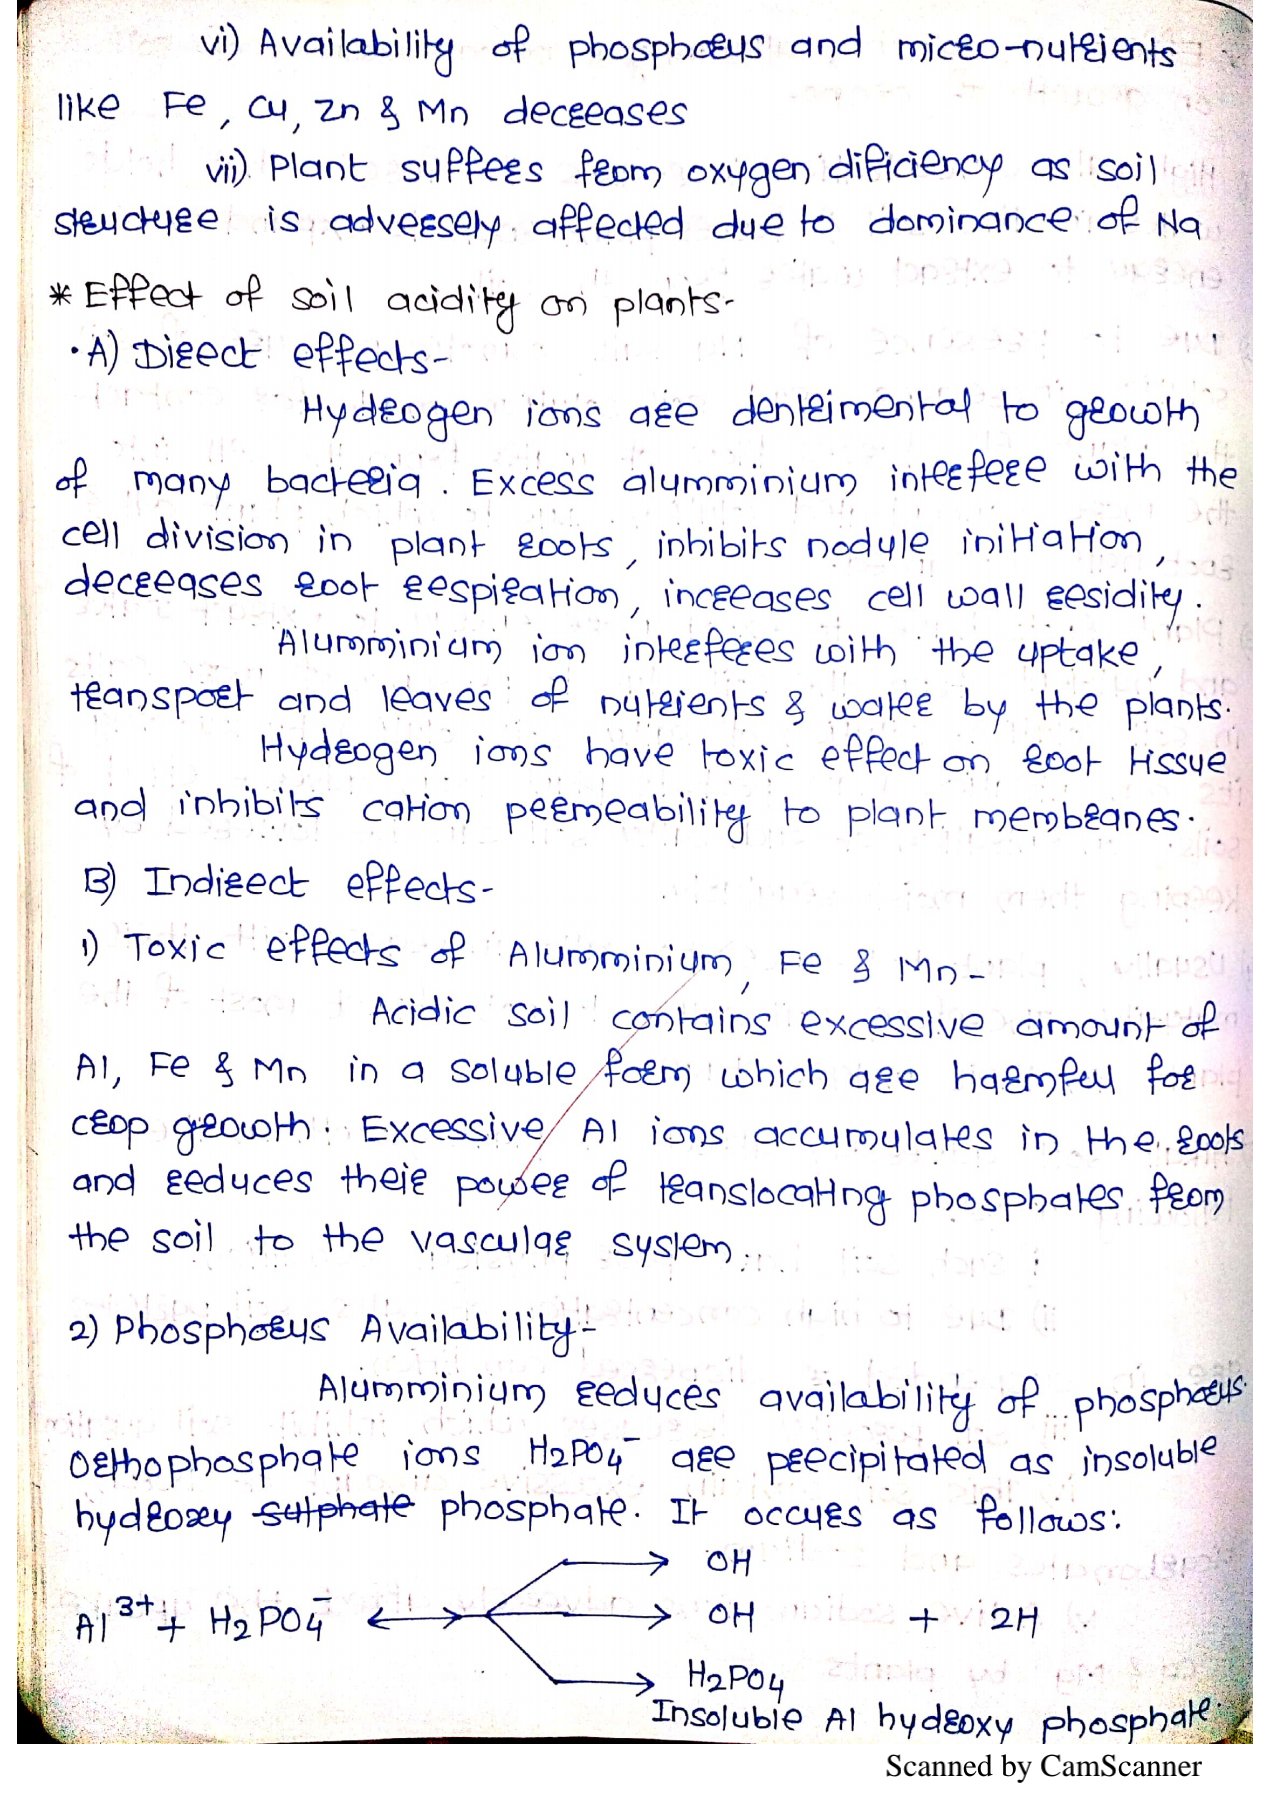 vi) Availability of phosphorus and micro-nutrients
like Fe, Cu, Zn & Mn decreases
vii) Plant suffers from oxygen dificiency as soil
structure is adversely affected due to dominance of Na
* Effect of soil acidity on plants-
· A) Direct effects-
Hydrogen ions are dentrimental to growth
of many bacteria. Excess alumminium interfere with the
cell division in plant roots, inhibits nodule initiation,
decreases root respiration, increases cell wall residity.
Alumminium ion interferes with the uptake,
transport and leaves of nutrients & water by the plants.
Hydrogen ions have toxic effect on root tissue
and inhibits cation permeability to plant membranes.
B) Indirect effects-
1) Toxic effects of Alumminium, Fe & Mn-
Acidic soil contains excessive amount of
Al, Fe & Mn in a soluble form which are harmful for
crop growth. Excessive Al ions accumulates in the roots
and reduces their power of translocating phosphates from
the soil to the vascular system.
2) Phosphorus Availability-
Alumminium reduces availability of phosphorus.
Orthophosphate ions H2PO4⁻ are precipitated as insoluble
hydroxy sulphate phosphate. It occurs as follows:
OH
Al³⁺ + H2PO4⁻ ↔ → OH + 2H
H2PO4
Insoluble Al hydroxy phosphate.
Scanned by CamScanner